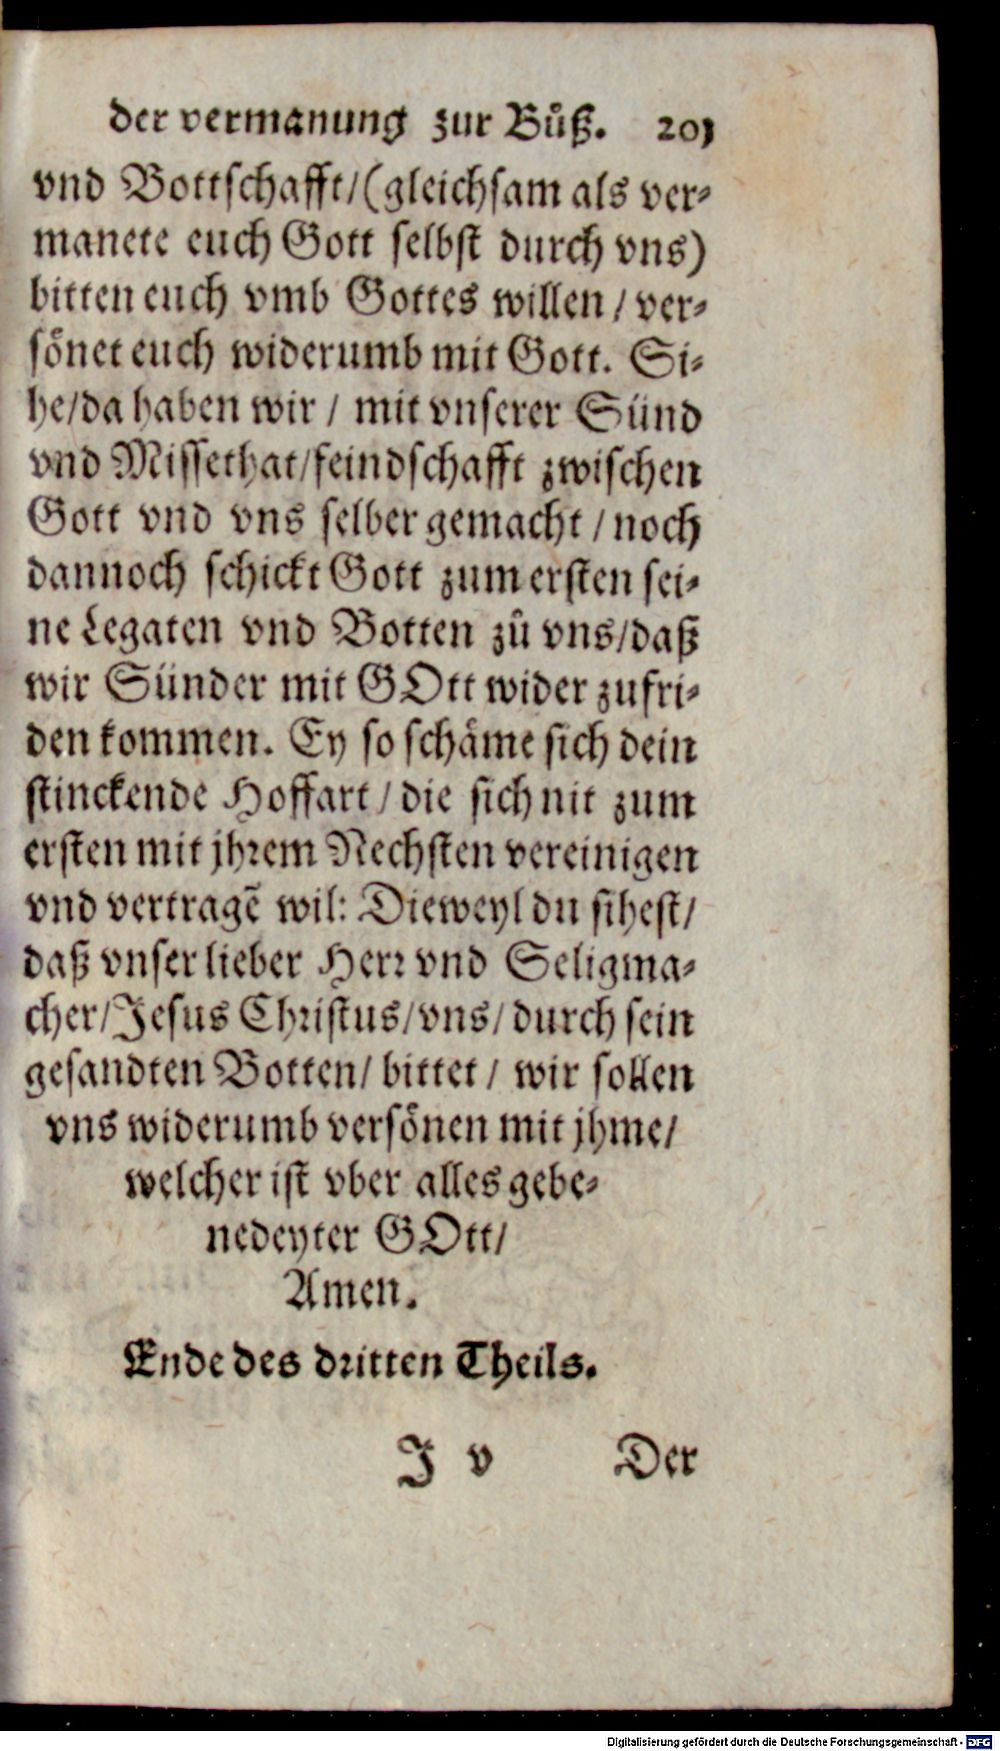 der vermanung zur Bůß. 201
vnd Bottschafft/(gleichsam als ver-
manete euch Gott selbst durch vns)
bitten euch vmb Gottes willen / ver-
sönet euch widerumb mit Gott. Si-
he/da haben wir / mit vnserer Sünd
vnd Missethat/feindschafft zwischen
Gott vnd vns selber gemacht / noch
dannoch schickt Gott zum ersten sei-
ne Legaten vnd Botten zů vns/daß
wir Sünder mit GOtt wider zufri-
den kommen. Ey so schäme sich dein
stinckende Hoffart / die sich nit zum
ersten mit jhrem Nechsten vereinigen
vnd vertragē wil: Dieweyl du sihest/
daß vnser lieber Herr vnd Seligma-
cher/Jesus Christus/vns/durch sein
gesandten Botten/ bittet / wir sollen
vns widerumb versönen mit jhme/
welcher ist vber alles gebe-
nedeyter GOtt/
Amen.
Ende des dritten Theils.
J v Der
Digitalisierung gefördert durch die Deutsche Forschungsgemeinschaft - DFG